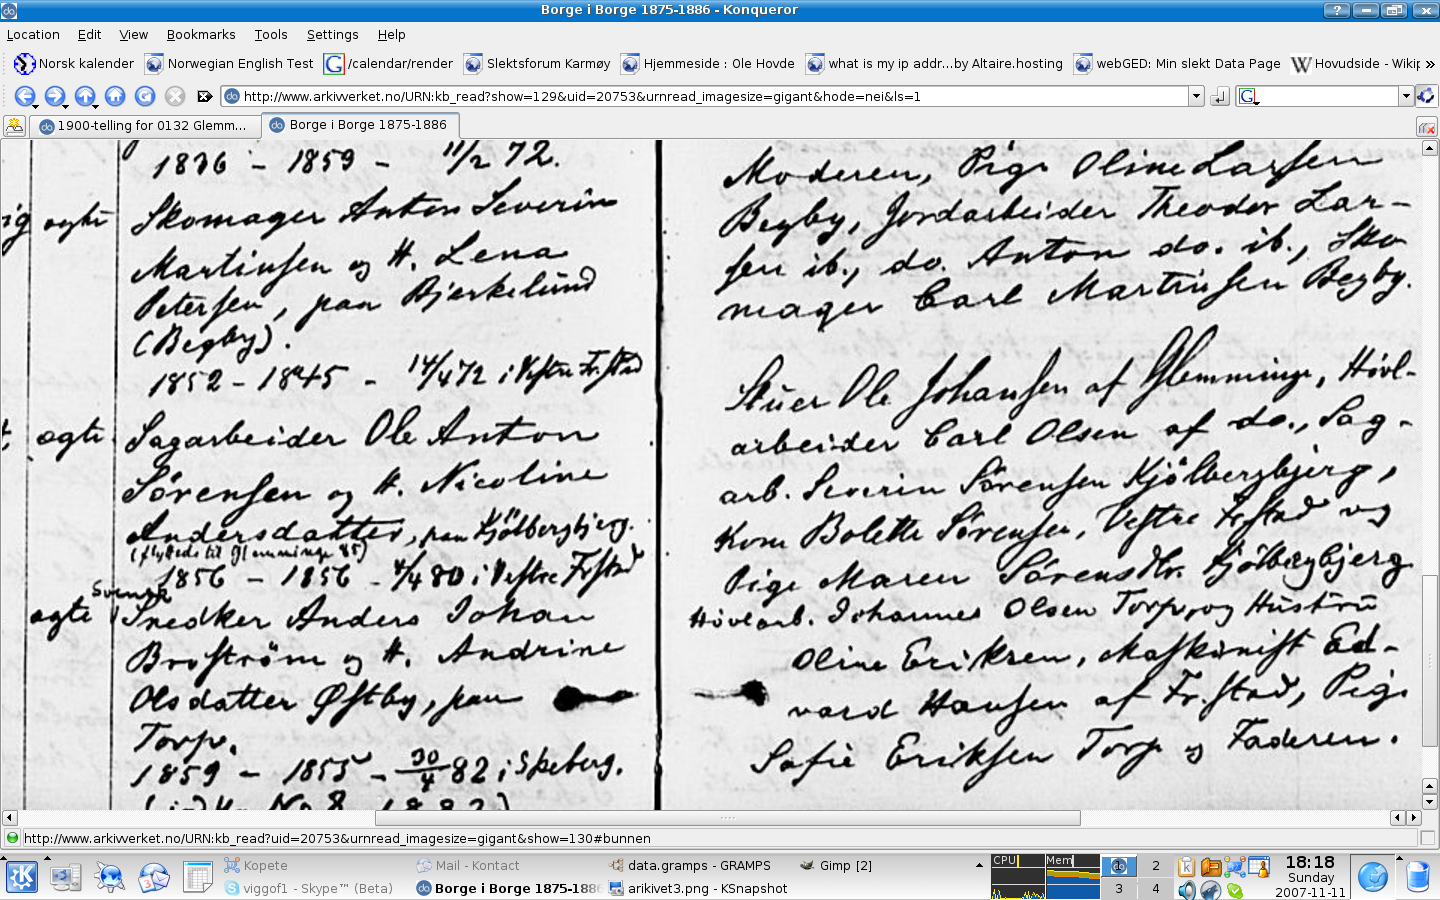 Borge i Borge 1875-1886 - Konqueror
Location Edit View Bookmarks Tools Settings Help
Norsk kalender Norwegian English Test /calendar/render Slektsforum Karmøy Hjemmeside : Ole Hovde what is my ip addr...by Altaire.hosting webGED: Min slekt Data Page Hovudside - Wikip »
http://www.arkivverket.no/URN:kb_read?show=129&uid=20753&urnread_imagesize=gigant&hode=nei&ls=1
1900-telling for 0132 Glemm... Borge i Borge 1875-1886
1836 - 1859 - 11/2 72.
ægte Skomager Anton Severin
Martinsen og H. Lena
Petersen, paa Bjerkelund
(Begby).
1852 - 1845 - 14/4 72 i Vestre Frstad
ægte Sagarbeider Ole Anton
Sörensen og H. Nicoline
Andersdatter, paa Kjölbergbjerg.
(flyttede til Glemminge 85)
1856 - 1856 - 4/4 80 i Vestre Frstad
Svensk
ægte Snedker Anders Johan
Broström og H. Andrine
Olsdatter Østby, paa
Torp.
1859 - 1855 - 30/4 82 i Skeberg.
No 8 1882)
Moderen, Pige Oline Larsen
Begby, Jordarbeider Theodor Lar-
sen ib., do. Anton do. ib., Sko
mager Carl Martinsen Begby.
Stuer Ole Johansen af Glemminge, Hövl-
arbeider Carl Olsen af do., Sag-
arb. Severin Sörensen Kjölbergbjerg,
Kone Bolette Sörensen, Vestre Frstad og
Pige Maren Sörensdtr. Kjölbergbjerg
Hövlarb. Johannes Olsen Torp, og Hustru
Oline Eriksen, Maskinist Ed-
vard Hansen af Fr.stad, Pige
Sofie Eriksen Torp og Faderen.
http://www.arkivverket.no/URN:kb_read?uid=20753&urnread_imagesize=gigant&show=130#bunnen
Kopete Mail - Kontact data.gramps - GRAMPS Gimp [2]
viggof1 - Skype™ (Beta) Borge i Borge 1875-1886 arikivet3.png - KSnapshot
CPU Mem 2 3 4
18:18
Sunday
2007-11-11